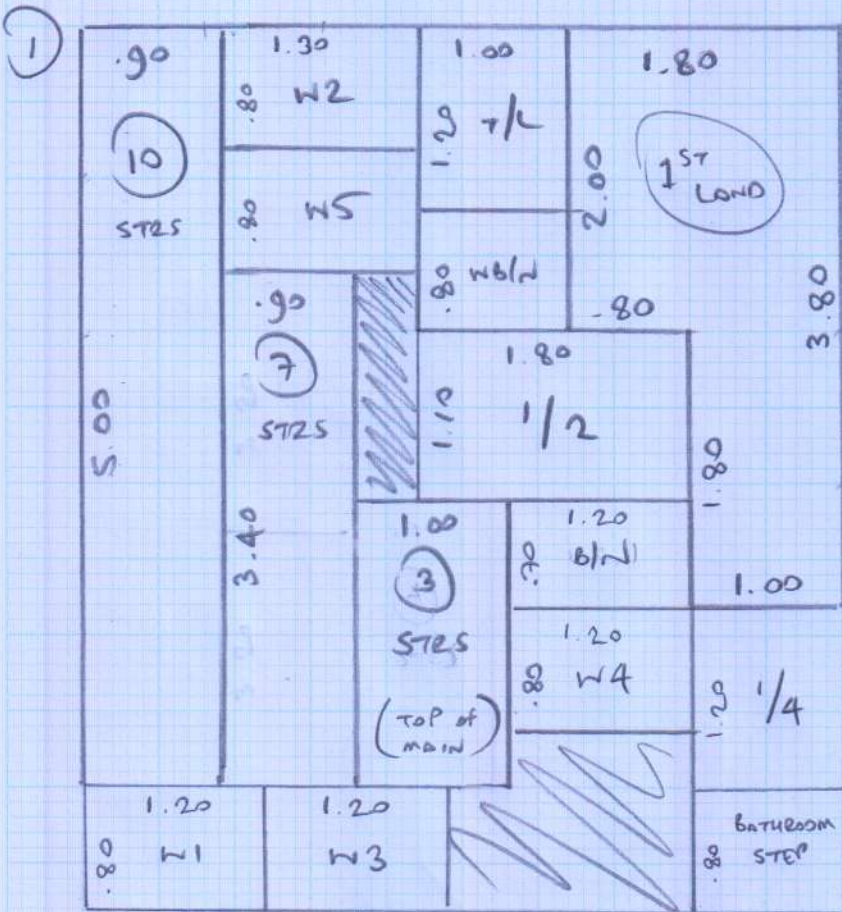 1
.90
10
STRS
5.00
1.30
.80 W2
.80 W5
.90
7
STRS
3.40
1.00
1.20 T/L
.80 WB/N
1.80
1ST
LAND
2.00
.80
3.80
1.80
1.00
1.80
1.10 1/2
1.00
3
STRS
(TOP OF
MAIN)
1.20
.70 B/N
1.20
.80 W4
1.20 1/4
1.20
.80 W1
1.20
W3
BATHROOM
.80 STEP